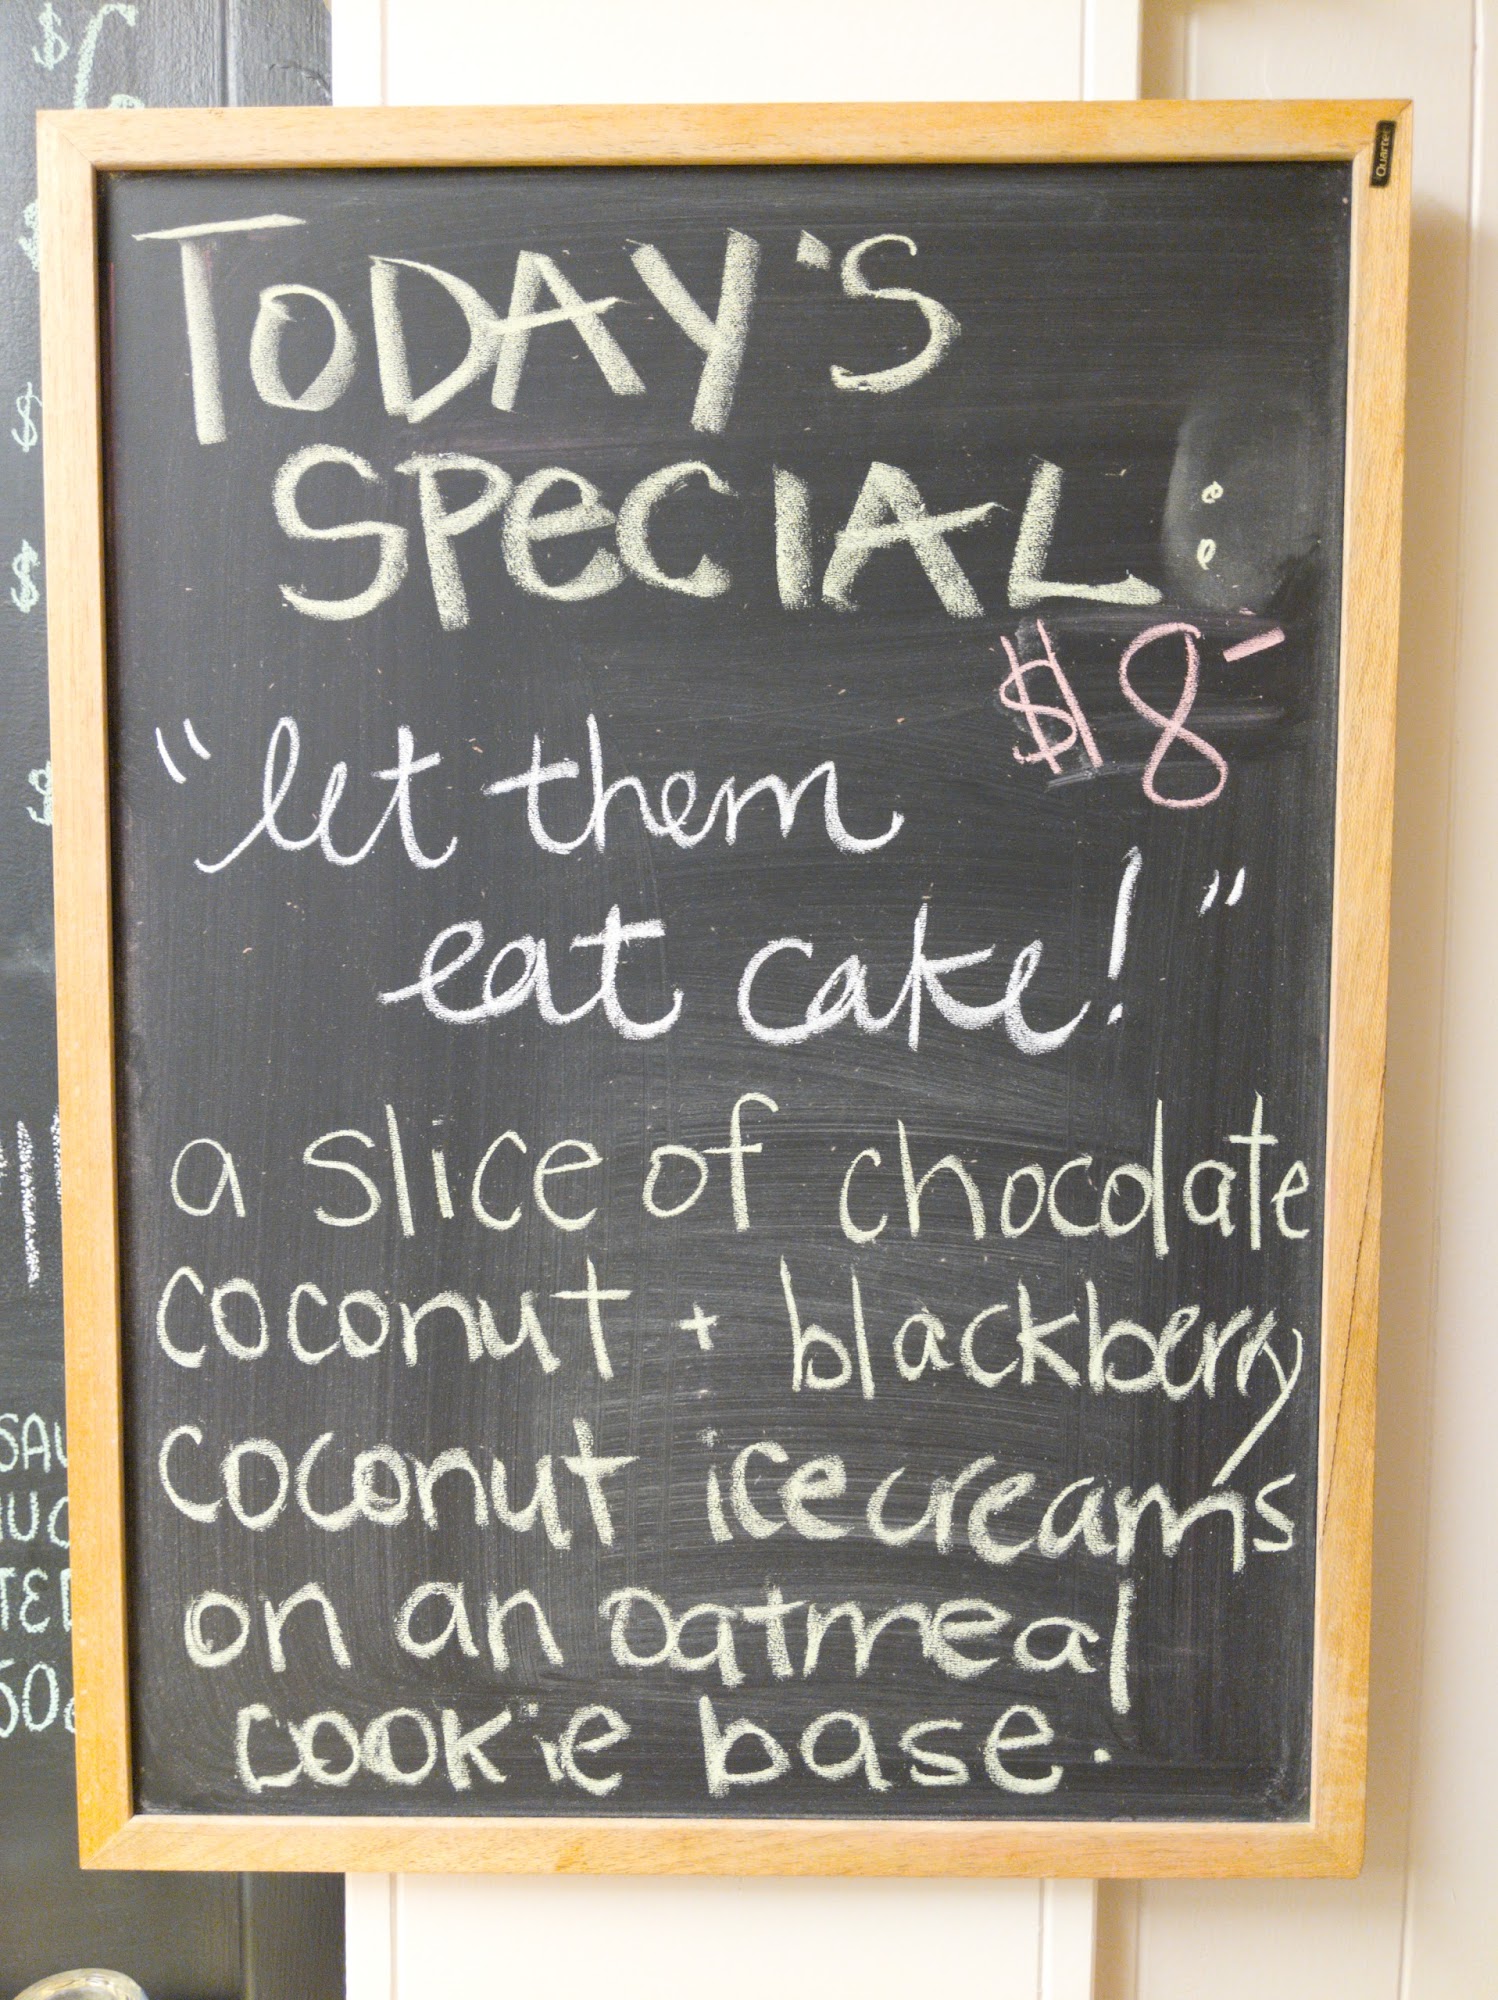 $6
$
$
$
$
SAU
TED
50¢
Quartet
TODAY'S
SPeCIAL:
$8-
"let them
eat cake!"
a slice of chocolate
coconut + blackberry
coconut icecreams
on an oatmeal
cookie base.